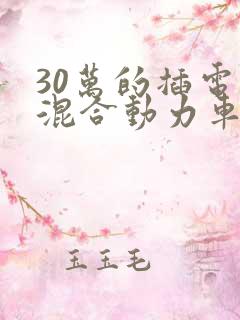 30萬的插電
混合動力車
玉玉毛